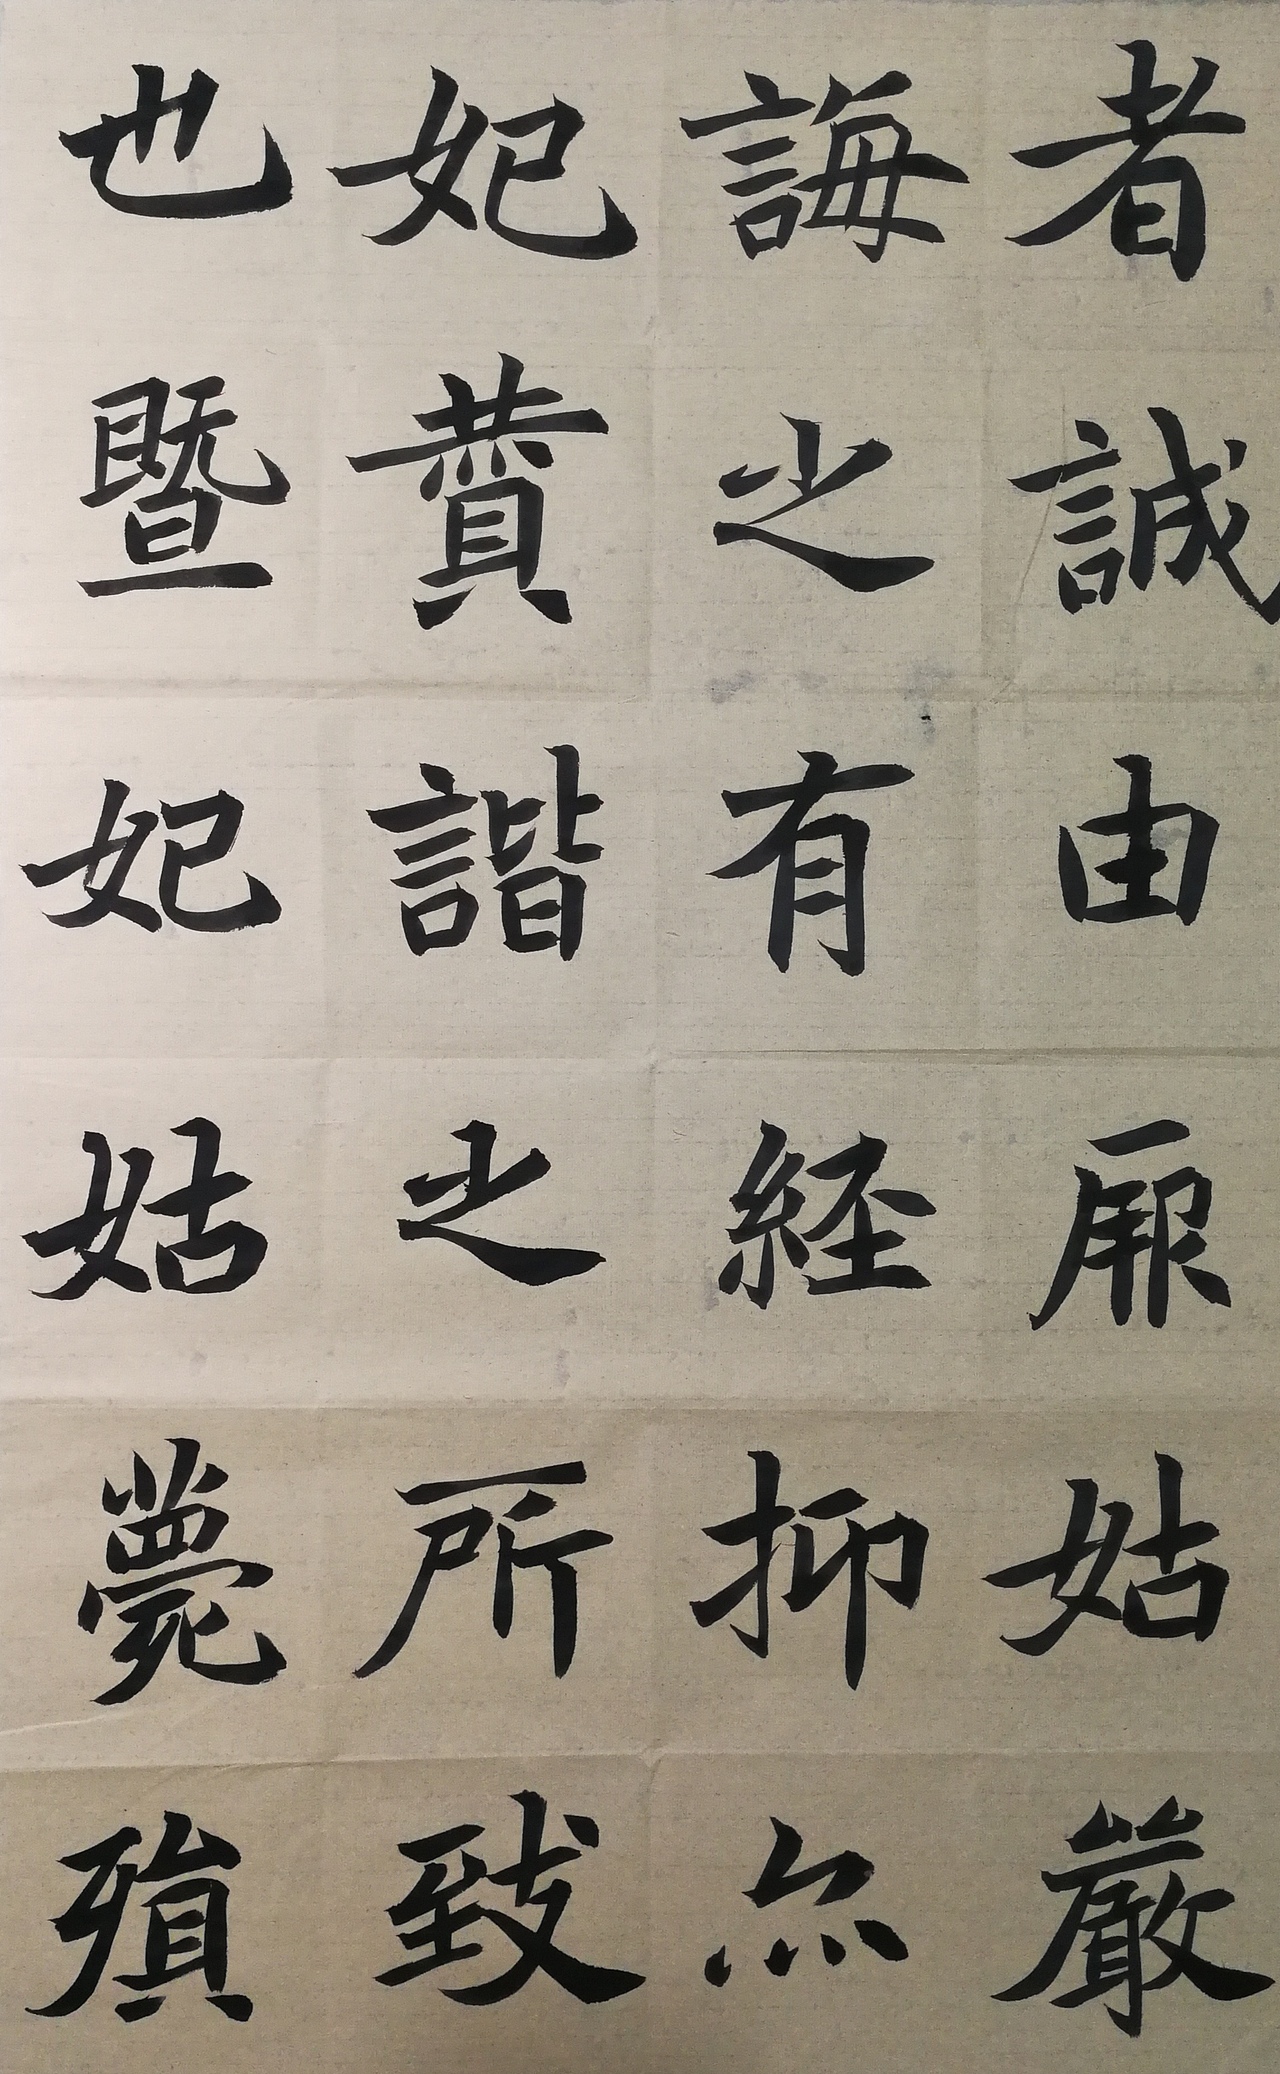 者誠由厥姑嚴
誨之有経抑亦
妃賁諧之所致
也暨妃姑薨殞